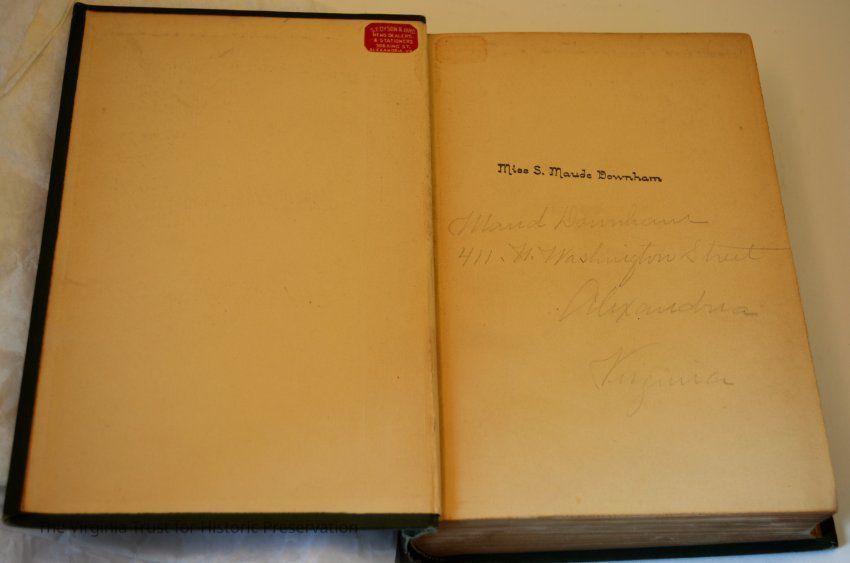 & STATIONERS
Miss S. Maude Downham
Maud Downham
411. N. Washington Street
Alexandria
Virginia
The Virginia Trust for Historic Preservation